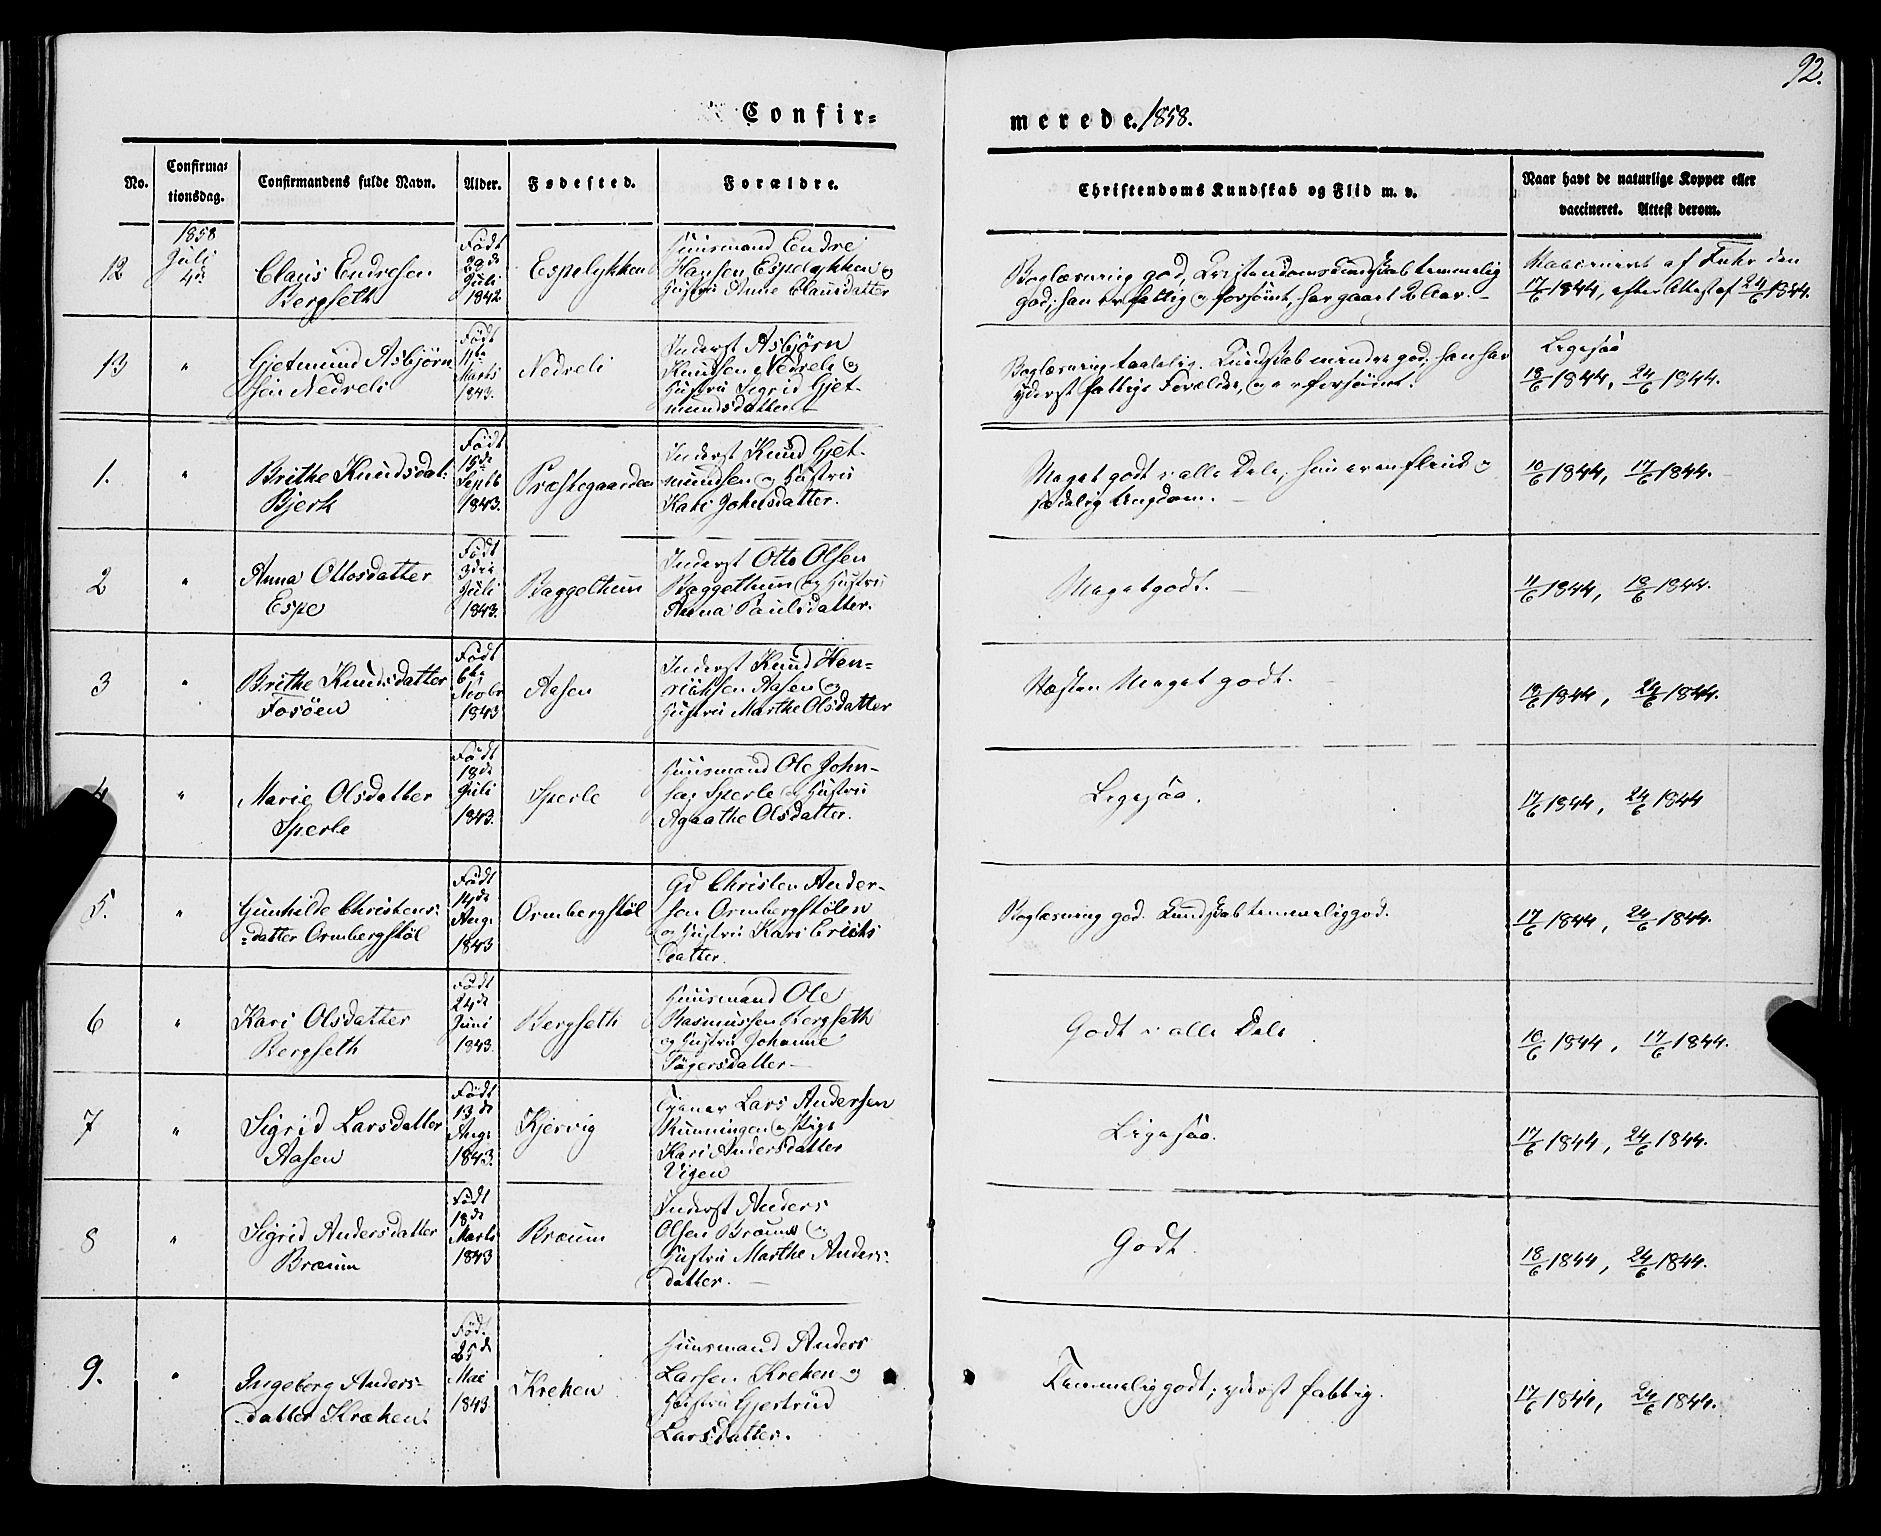 92.
Confir=
merede. 1858.
No.
Confirma=
tionsdag.
Confirmandens fulde Navn.
Alder.
Fødested.
Forældre.
Christendoms Kundskab og Flid m. v.
Naar havt de naturlige Kopper eller
vaccineret. Attest derom.
12
1858
Juli
4de
Claus Endresen
Bergseth
Født
29de
Juli
1842
Espelykken
Huusmand Endre
Hansen Espelykken og
Hustru Anne Clausdatter
Boglæsning god, Kristendomskundskab temmelig
god; han er fattig og forsömt, har gaaet 2 Aar. –
Vaccineret af Fuhr den
17/6 1844, efter Attest af 24/6 1844.
13
"
Gjetmund Asbjørn
sen Nedreli
Født
11te
Marts
1843.
Nedreli
Inderst Asbjørn
Knudsen Nedreli og
Hustru Sigrid Gjet-
mundsdatter. –
Boglæsning taalelig. Kundskab mindre god; han har
yderst fattige Forældre, og er forsömt.
Ligesaa
18/6 1844, 24/6 1844.
1.
"
Brithe Knudsdat:
Bjerk
Födt
15de
Septb
1843.
Præstegaarden
Inderst Knud Gjet-
mundsen og Hustru
Kari Johnsdatter.
Meget godt i alle Dele, hun er en flink og
sædelig Ungdom. –
10/6 1844, 17/6 1844.
2
"
Anna Ottosdatter
Espe
Födt
3die
Juli
1843.
Baggethun
Inderst Otto Olsen
Baggethun og Hustru
Anna Paulsdatter.
Meget godt. –
11/6 1844, 18/6 1844.
3
"
Brithe Knudsdatter
Fosöen
Födt
6te
Novbr
1843
Aasen
Inderst Knud Hen-
riksen Aasen og
Hustru Marthe Olsdatter
Næsten Meget godt.
18/6 1844, 24/6 1844.
4
"
Marie Olsdatter
Sperle
Födt
18de
Juli
1843.
Sperle
Huusmand Ole John-
sen Sperle og Hustru
Agaathe Olsdatter.
Ligesaa.
17/6 1844, 24/6 1844
5.
"
Gunhilde Christens:
=datter Ormbergstöl
Födt
14de
Aug.
1843
Ormbergstöl
Gd Christen Ander-
sen Ormbergstölen
og Hustru Kari Eriks
datter.
Boglæsning god. Kundskab temmelig god.
17/6 1844, 24/6 1844.
6
"
Kari Olsdatter
Bergseth
Födt
24de
Juni
1843.
Bergseth
Huusmand Ole
Rasmussen Bergseth
og Hustru Johanne
datter –
Godt i alle Dele
10/6 1844, 17/6 1844.
7
"
Sigrid Larsdatter
Aasen
Födt
13de
Aug.
1843.
Kjervig
Lars Andersen
og Pige
Kari Andersdatter
Vigen
Ligesaa.
17/6 1844, 24/6 1844.
8
"
Sigrid Andersdatter
Bræum
Födt
18de
Marts
1843
Bræum
Inderst Anders
Olsen Bræum og
Hustru Marthe Anders:
datter. –
Godt.
18/6 1844, 24/6 1844.
9.
"
Ingeborg Anders-
datter Kræken.
Föd.
25de
Mai
1843
Kreken
Huusmand Anders
Larsen Kreken og
Hustru Gjertrud
Larsdatter.
Temmelig godt; yderst fattig.
17/6 1844, 24/6 1844.